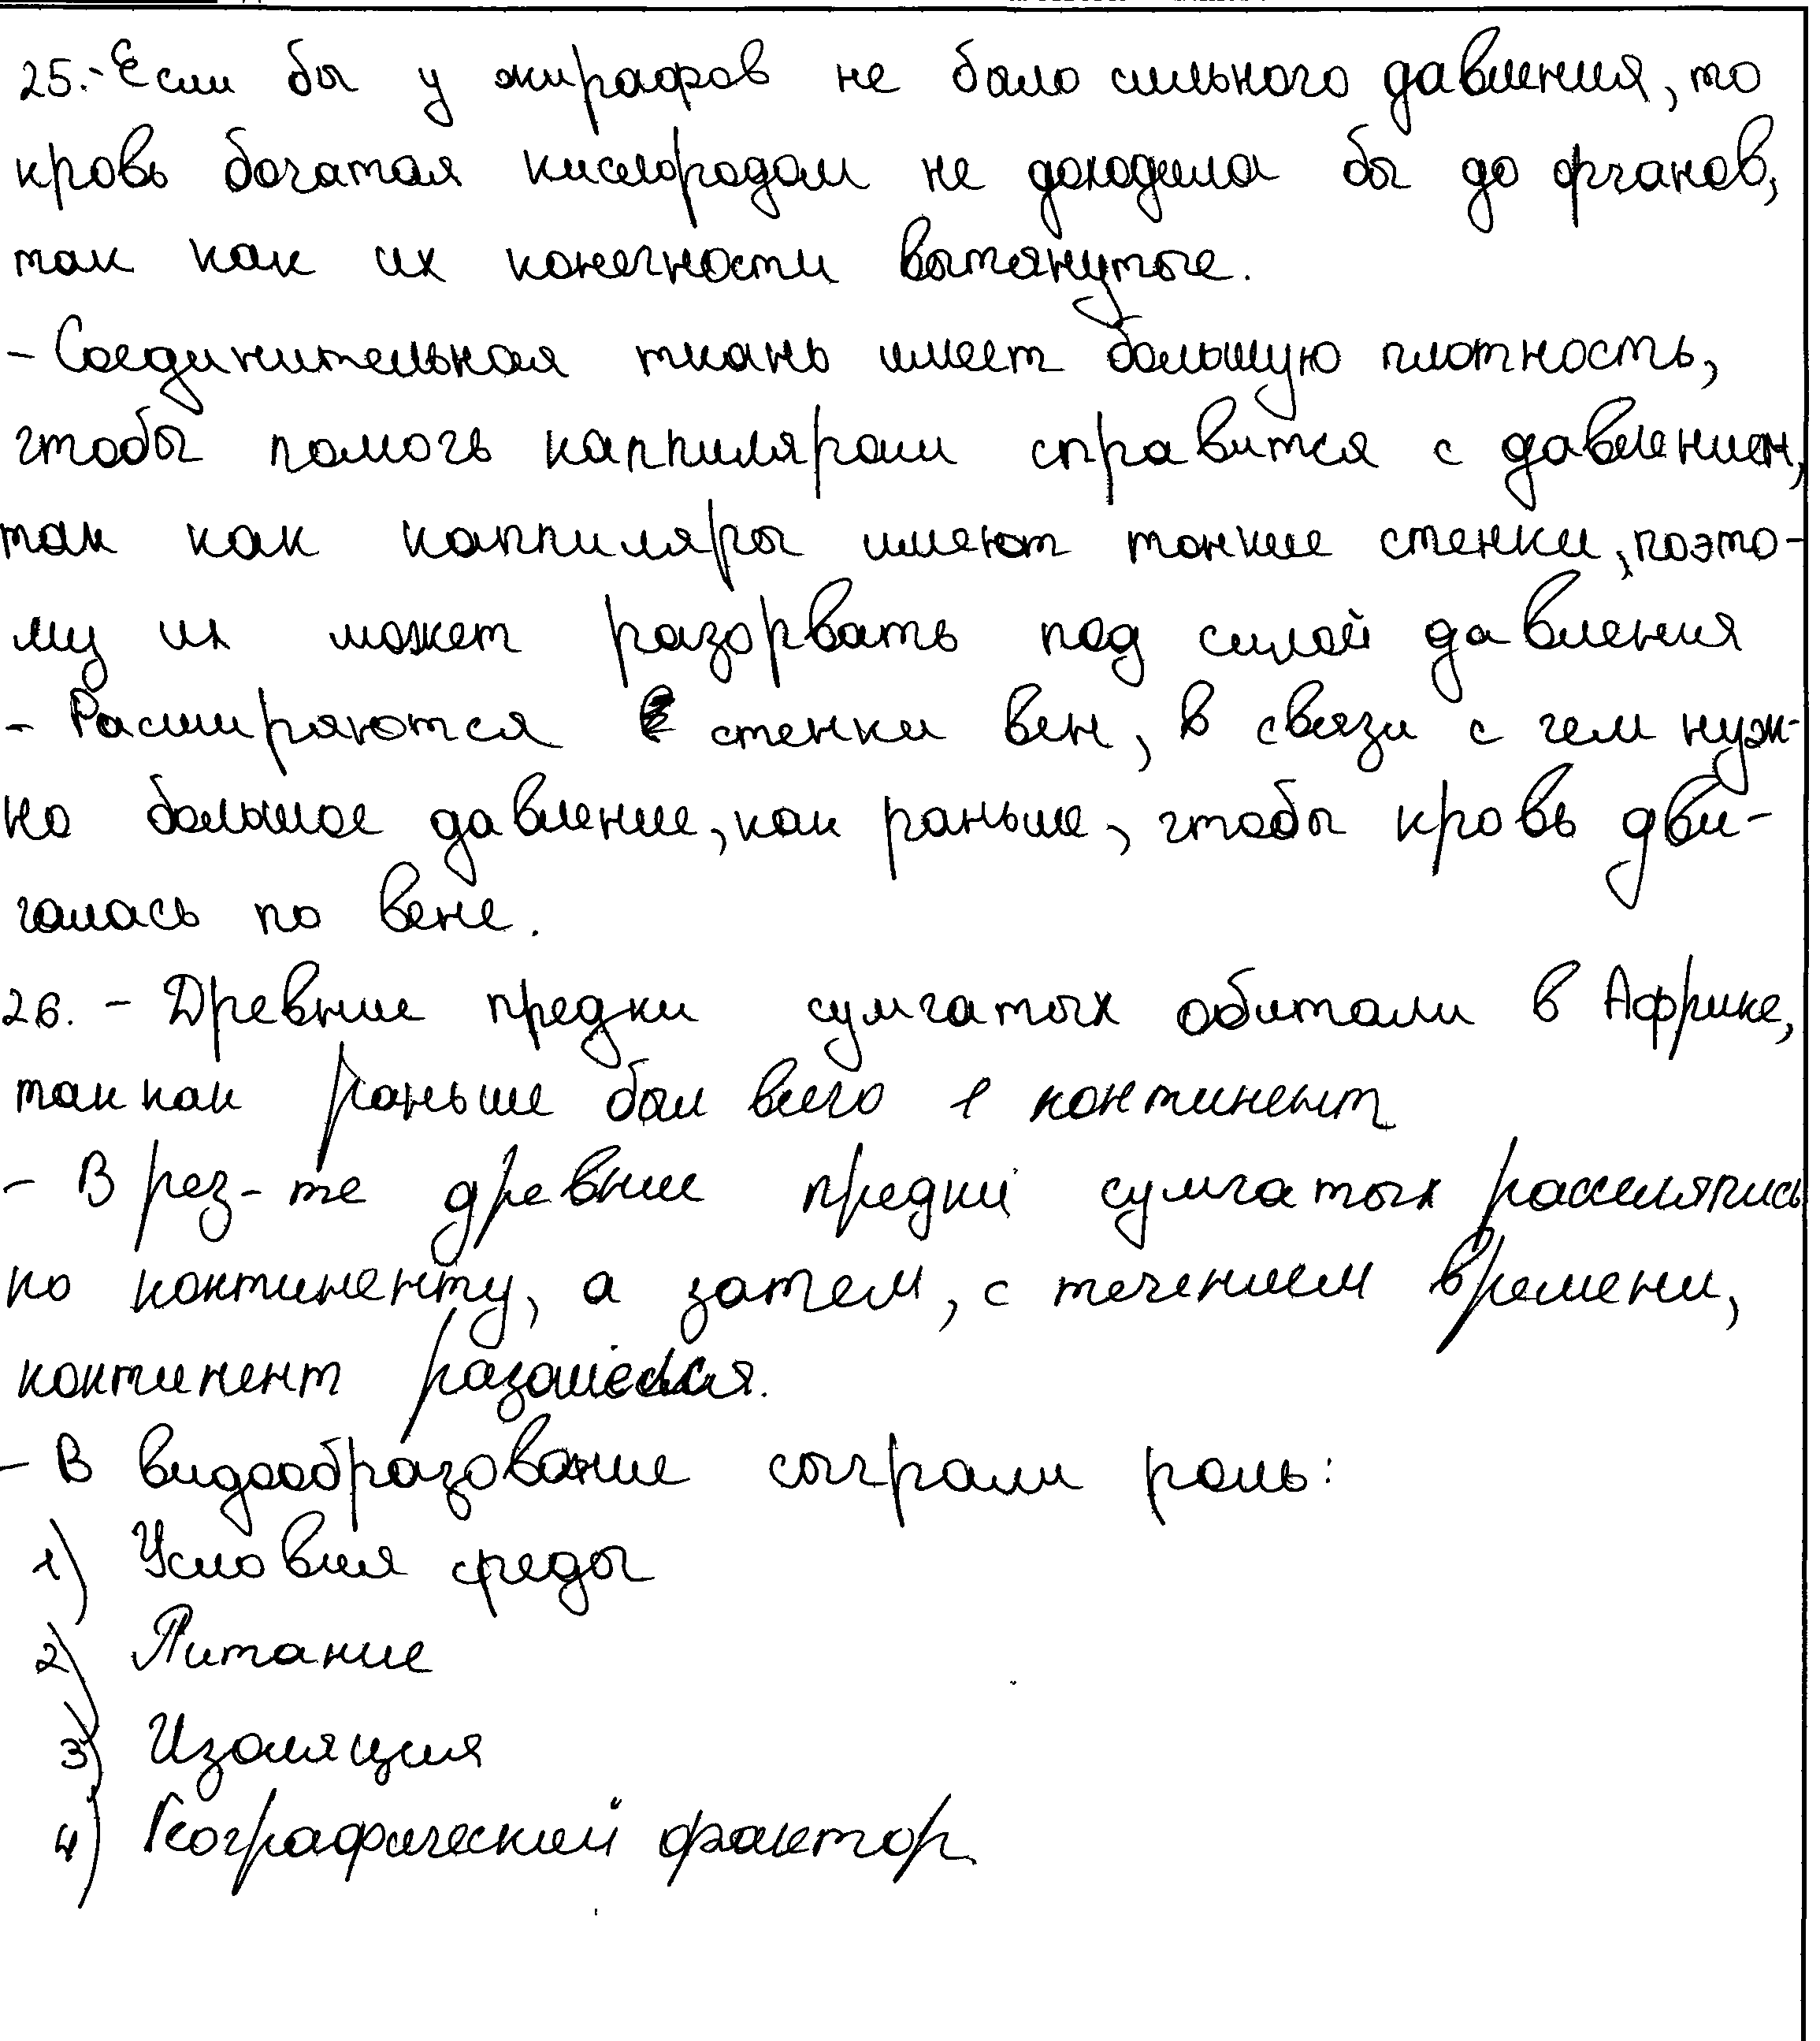 25.- Если бы у жирафов не было сильного давления, то
кровь богатая кислородом не доходила бы до органов,
так как их конечности вытянутые.
- Соединительная ткань имеет большую плотность,
чтобы помочь каппилярам справится с давлением,
так как каппиляры имеют тонкие стенки, поэто-
му их может разорвать под силой давления
- Расширяются стенки вен, в связи с чем нуж-
но большое давление, как раньше, чтобы кровь дви-
галась по вене.
26. - Древние предки сумчатых обитали в Африке,
так как раньше был всего 1 континент
- В рез-те древние предки сумчатых расселялись
по континенту, а затем, с течением времени,
континент разошёлся.
- В видообразование сыграли роль:
1) Условия среды
2) Питание
3) Изоляция
4) Географический фактор